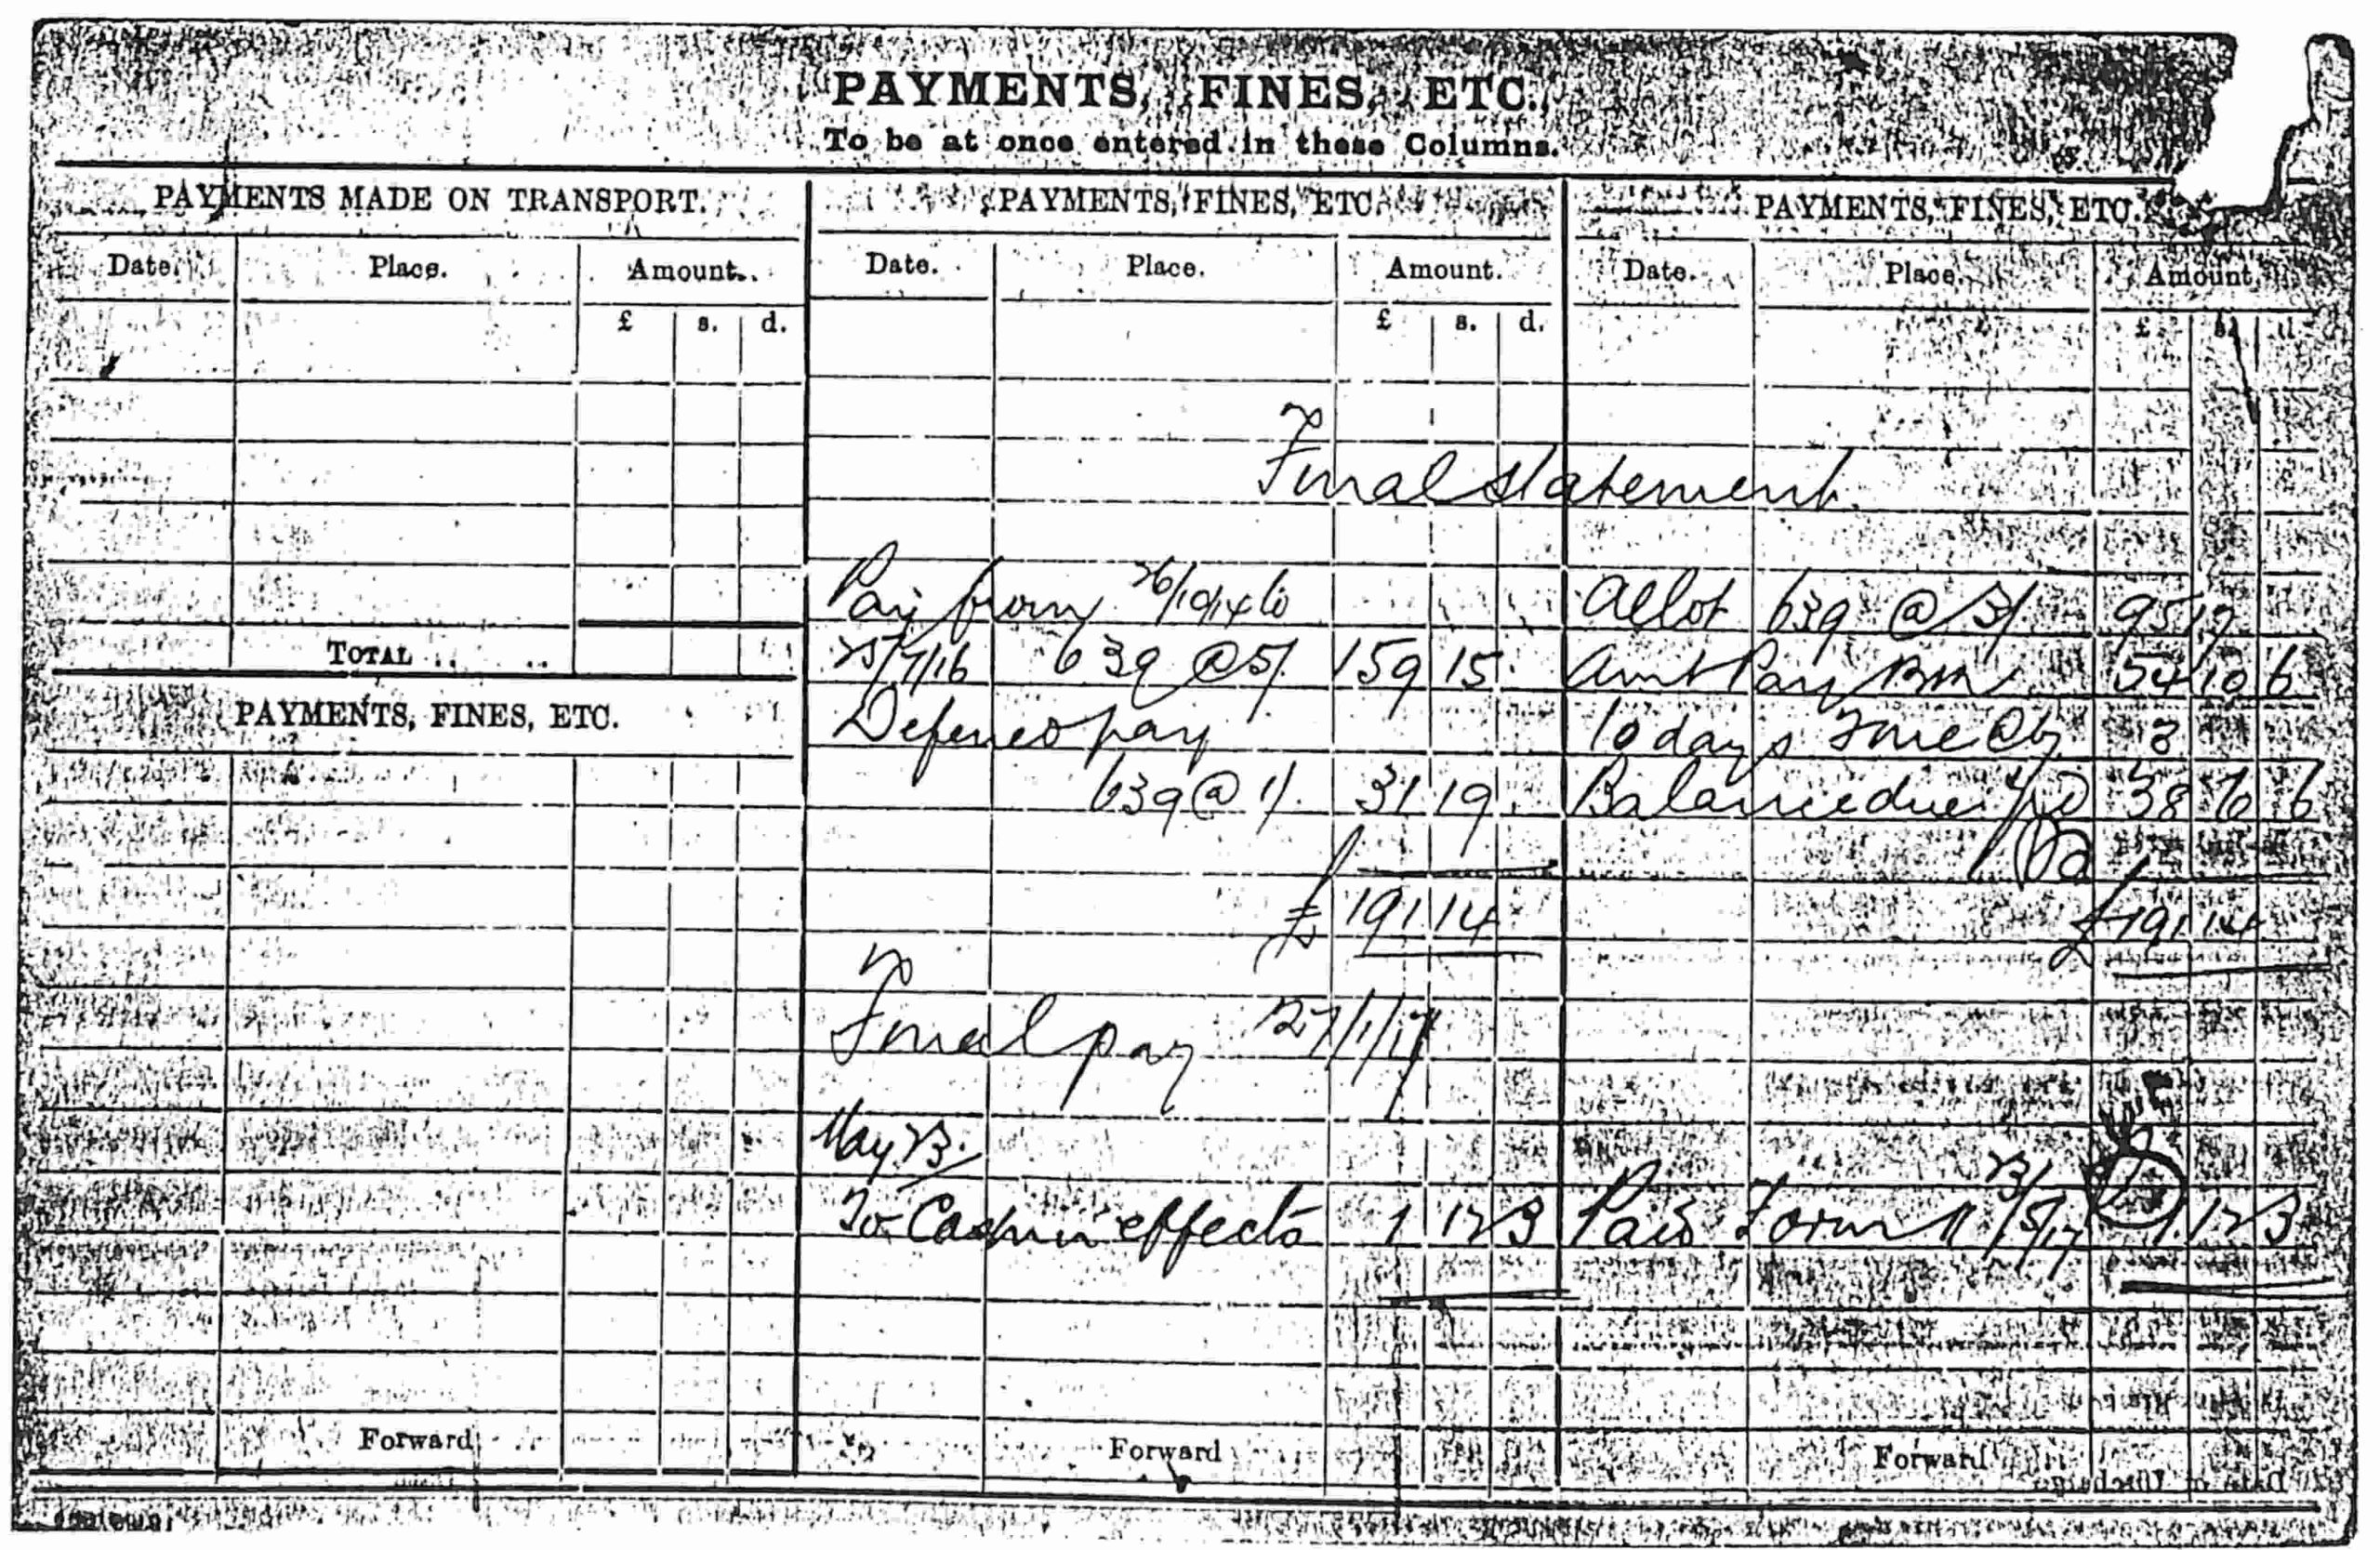 PAYMENTS, FINES, ETC.,
To be at once entered in these Columns.
PAYMENTS MADE ON TRANSPORT.
Date. Place. Amount.
£ s. d.
TOTAL ..
PAYMENTS, FINES, ETC.
Forward
PAYMENTS, FINES, ETC.
Date. Place. Amount.
£ s. d.
Final Statement
Pay from 26/10/14 to
25/7/16 639 @ 5/. 159 15
Deferred pay
639 @ 1/. 31 19
£ 191 14
Final pay 27/1/17
May 23.
To Cash in effects 1 12 3
Forward
PAYMENTS, FINES, ETC.
Date. Place. Amount.
£ s. d.
Allot 639 @ 3/. 95 17
Amt Pay Bk 54 10 6
10 days Fine @ 6/ 3
Balance due 38 6 6
£ 191 14
Paid Form 11 23/5/17 1 12 3
Forward